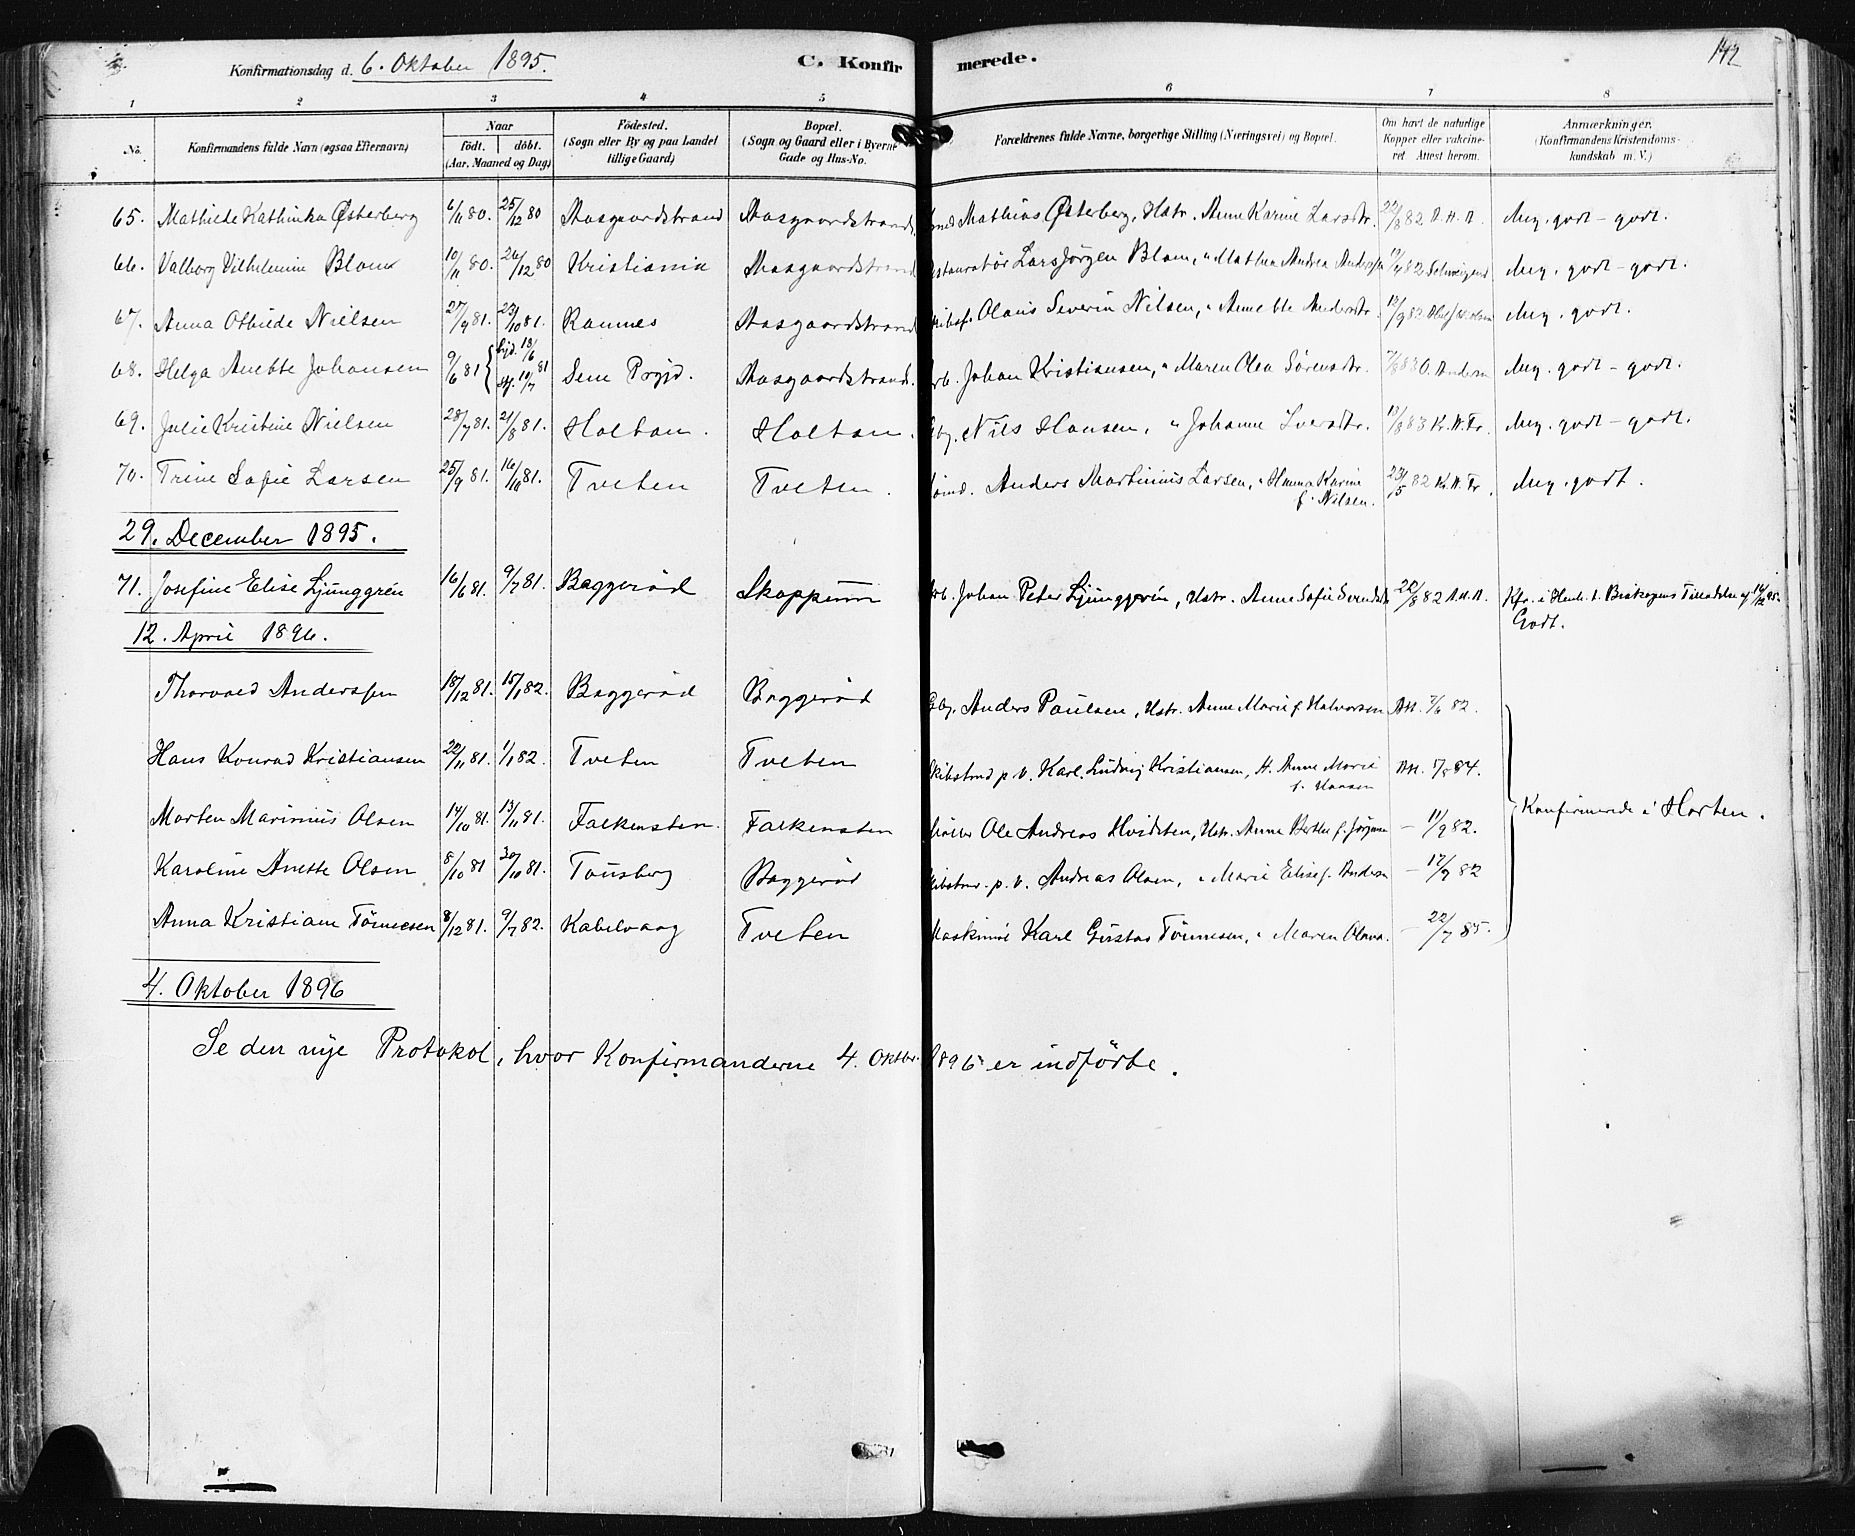 Konfirmationsdag d. 6. Oktober 1895.
C. Konfirmerede.
142
1 2 3 4 5 6 7 8
No.
Konfirmandens fulde Navn (ogsaa Efternavn)
Naar
födt. döbt.
(Aar, Maaned og Dag)
Födested.
(Sogn eller By og paa Landet
tillige Gaard)
Bopæl.
(Sogn og Gaard eller i Byerne
Gade og Hus-No.
Forældrenes fulde Navne, borgerlige Stilling (Næringsvei) og Bopæl.
Om havt de naturlige
Kopper eller vakcine-
ret Attest herom.
Anmærkninger.
(Konfirmandens Kristendoms-
kundskab m. V.)
65. Mathilde Kathinka Østerberg 6/11 80. 25/12 80 Aasgaardstrand Aasgaardstrand Mathias Østerberg, Hstr. Anne Karine Larsdtr. 22/8 82 A.H.A. Meg. godt - godt.
66. Valborg Vilhelmine Blom 10/11 80. 26/12 80 Kristiania Aasgaardstrand Lars Jörgen Blom, " Mathea Andrea 82 Meg. godt - godt.
67. Anna Othilde Nielsen 27/9 81. 23/10 81. Ramnes Aasgaardstrand Olaus Severin Nilsen, " Annette Andersdtr. 13/9 82 Meg. godt.
68. Helga Anette Johansen 9/6 81 hjd. 18/6 81 Sem Prgjd. Aasgaardstrand. Johan Kristiansen, " Maren Olea Sörensdtr. O. Andersen Meg. godt - godt.
69. Julie Kristine Nielsen 28/7 81. 21/8 81. Holtan. Holtan. Gbg. Nils Hansen, " Johanne Iversdtr. 13/8 83 Kr. A. Fr. Meg. godt - godt.
70. Trine Sofie Larsen 25/9 81. 16/10 81. Tveten Tveten. Anders Martinius Larsen, " Hanna Karine
f. Nilsen. 23/5 82 Kr. A. Fr. Meg. godt.
29. December 1895.
71. Josefine Elise Ljunggrén 16/6 81. 9/7 81. Baggeröd Skoppum Arb. Johan Peter Ljunggrén, Hstr. Anne Sofie 22/8 82 A.H.A. Kfr. i Henh. t. Biskopens Tilladelse af 14/12 95.
Godt.
12. April 1896.
Thorvald Anderssen 18/12 81. 15/1 82. Baggeröd Baggeröd Gbg. Anders Paulsen, Hstr. Anne Marie f. Halvorsen AH. 7/6 82.
Hans Konrad Kristiansen 22/11 81. 1/1 82. Tveten Tveten Skibstmd p. V. Karl Ludvig Kristiansen, H. Anne Marie
f. Hansen AH. 84.
Morten Marinius Olsen 14/10 81. 13/11 81. Falkensten. Falkensten Möller Ole Andreas Hvidsten, Hstr. Anne Berthe f. Jörgensen - 11/9 82.
Konfirmerede i Horten.
Karoline Anette Olsen 8/10 81 30/10 81. Tönsberg Baggeröd Skibstmd. p. V. Andreas Olsen, " Marie Elise f. Andersen - 17/9 82
Anna Kristiane Tönnesen 8/12 81. 9/7 82. Kabelvaag Tveten Maskinist Karl Gustav Tönnesen, " Maren Olava. - 22/7 85.
4. Oktober 1896
Se den nye Protokol, hvor Konfirmanderne 4. Oktbr. 1896 er indförte.